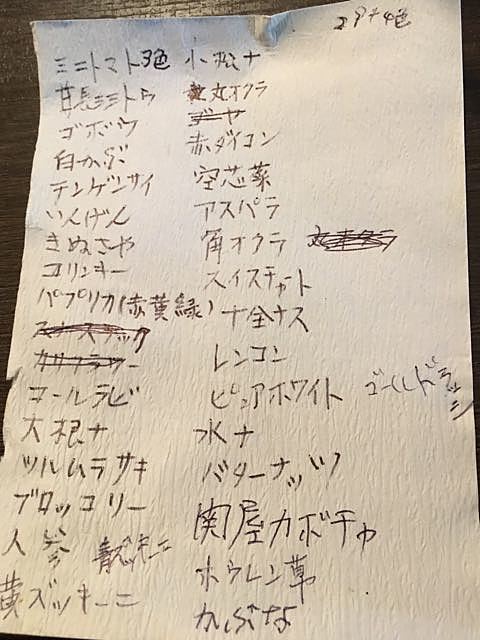 29+4色
ミニトマト3色
甘長ミニトウ
ゴボウ
白かぶ
チンゲンサイ
いんげん
きぬさや
コリンキー
パプリカ(赤黄緑)
カリフラワー
コールラビ
大根ナ
ツルムラサキ
ブロッコリー
人参 青ズッキーニ
黄ズッキーニ
小松ナ
丸オクラ
赤ダイコン
空芯菜
アスパラ
角オクラ
スイスチャート
十全ナス
レンコン
ピュアホワイト ゴールドラッシ
水ナ
バターナッツ
関屋カボチャ
ホウレン草
かぶな